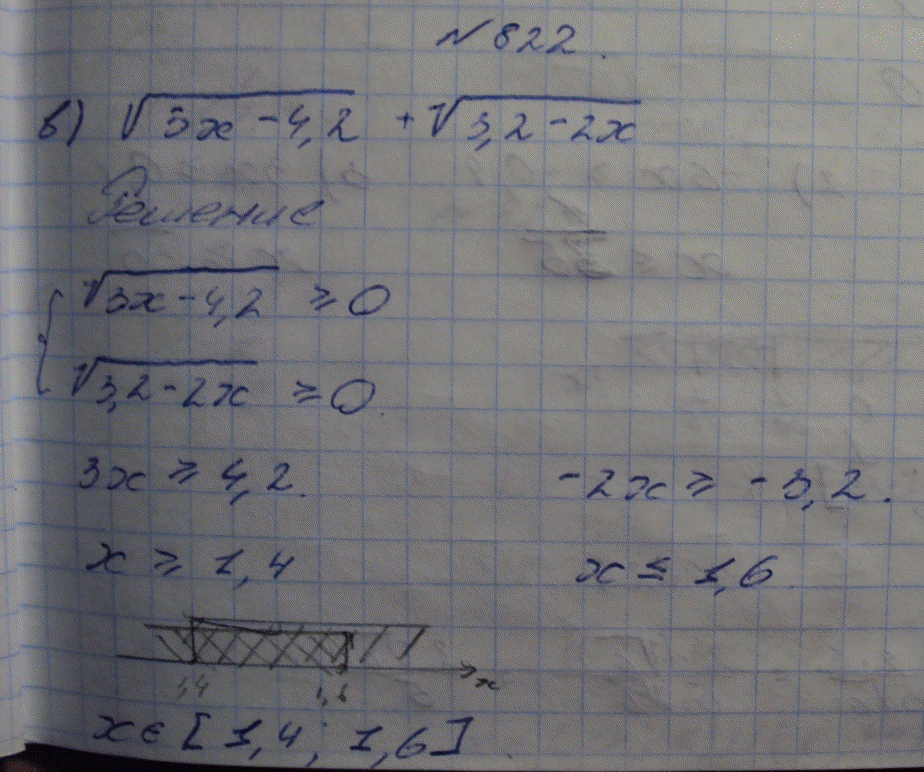 № 822.
в) √3x - 4,2 + √3,2 - 2x
Решение
{ √3x - 4,2 ≥ 0
√3,2 - 2x ≥ 0.
3x ≥ 4,2. -2x ≥ -3,2.
x ≥ 1,4 x ≤ 1,6
1,4 1,6 x
x ∈ [1,4; 1,6].